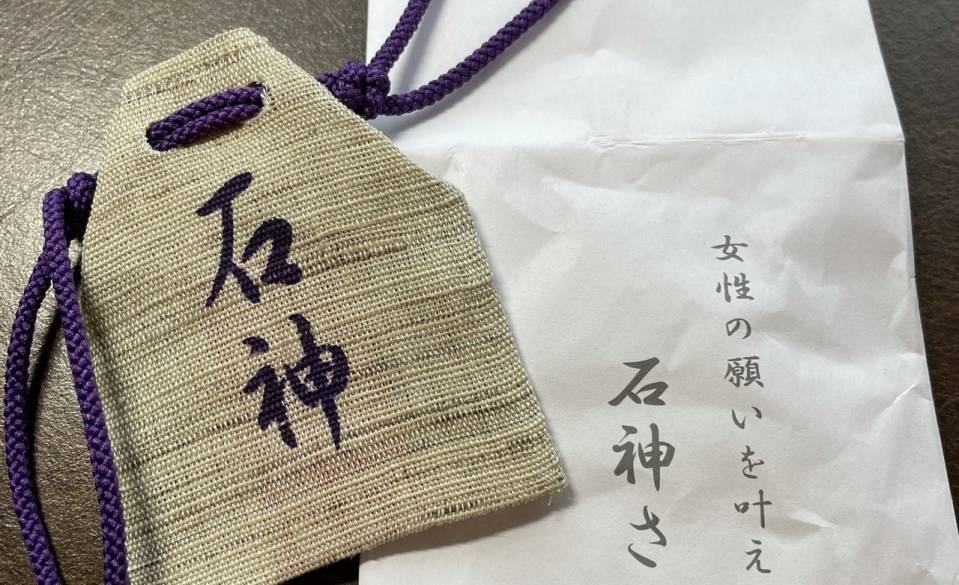 石神
女性の願いを叶え
石神さ